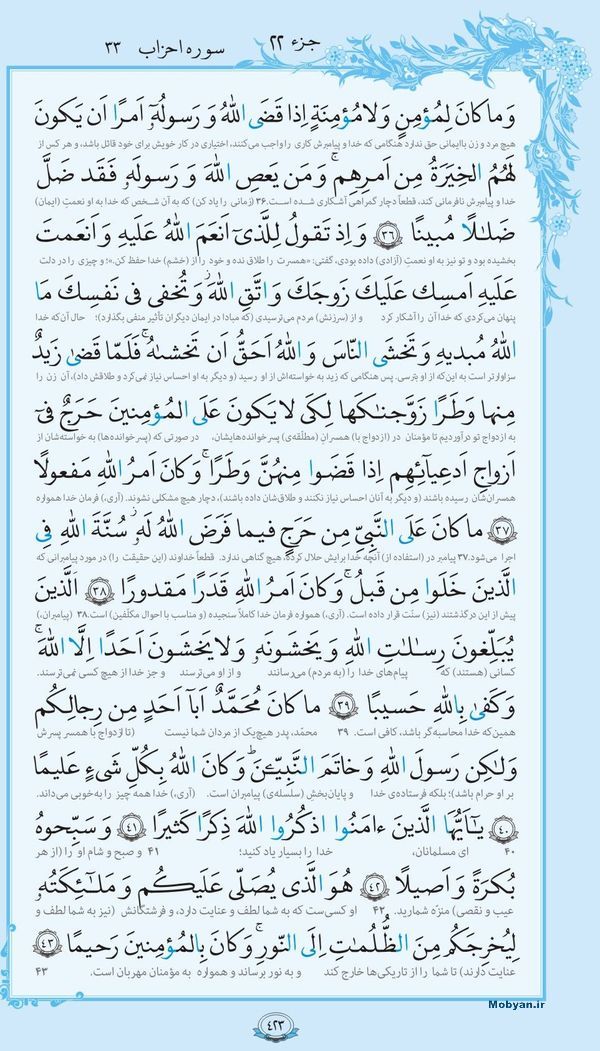 جزء ۲۲ سوره احزاب ۳۳
وَ ما كانَ لِمُؤمِنٍ وَلا مُؤمِنَةٍ اِذا قَضَى اللهُ وَ رَسولُهٓ اَمرًا اَن يَكونَ
هیچ مرد و زن باایمانی حق ندارد هنگامی که خدا و پیامبرش کاری را واجب می‌کنند، اختیاری در کار خویش برای خود قائل باشد، و هر کس از
لَهُمُ الخِيَرَةُ مِن اَمرِهِم ۚ وَ مَن يَعصِ اللهَ وَ رَسولَهٗ فَقَد ضَلَّ
خدا و پیامبرش نافرمانی کند، قطعاً دچار گمراهی آشکاری شده است.۳۶ (زمانی را یاد کن) که به آن شخص که خدا به او نعمتِ (ایمان)
ضَلٰلًا مُبينًا ۳۶ وَ اِذ تَقولُ لِلَّذىٓ اَنعَمَ اللهُ عَلَيهِ وَ اَنعَمتَ
بخشیده بود و تو نیز به او نعمتِ (آزادی) داده بودی، گفتی: «همسرت را طلاق نده و خود را از (خشمِ) خدا حفظ کن.»؛ و چیزی را در دلت
عَلَيهِ اَمسِك عَلَيكَ زَوجَكَ وَ اتَّقِ اللهَ وَ تُخفى فى نَفسِكَ مَا
پنهان می‌کردی که خدا آن را آشکار کرد و از (سرزنش) مردم می‌ترسیدی (که مبادا در ایمان دیگران تأثیر منفی بگذارد)؛ حال آن‌که خدا
اللهُ مُبديهِ وَ تَخشَى النّاسَ وَ اللهُ اَحَقُّ اَن تَخشىٰهُ ۚ فَلَمّا قَضىٰ زَيدٌ
سزاوارتر است به این‌که از او بترسی. پس هنگامی که زید به خواسته‌اش از او رسید (و دیگر به او احساس نیاز نمی‌کرد و طلاقش داد)، آن زن را
مِنها وَطَرًا زَوَّجنٰكَها لِكَى لا يَكونَ عَلَى المُؤمِنينَ حَرَجٌ فىٓ
به ازدواج تو درآوردیم تا مؤمنان در (ازدواج با) همسرانِ (مطلّقه‌ی) پسرخوانده‌هایشان، در صورتی که (پسرخوانده‌ها) به خواسته‌شان از
اَزواجِ اَدعِيآئِهِم اِذا قَضَوا مِنهُنَّ وَطَرًا ۚ وَ كانَ اَمرُ اللهِ مَفعولًا
همسرانشان رسیده باشند (و دیگر به آنان احساس نیاز نکنند و طلاقشان داده باشند)، دچار هیچ مشکلی نشوند. (آری،) فرمان خدا همواره
۳۷ ما كانَ عَلَى النَّبِىِّ مِن حَرَجٍ فيما فَرَضَ اللهُ لَهٗ سُنَّةَ اللهِ فِى
اجرا می‌شود.۳۷ پیامبر در (استفاده از) آنچه خدا برایش حلال کرده، هیچ گناهی ندارد. قطعاً خداوند (این حقیقت را) در مورد پیامبرانی که
الَّذينَ خَلَوا مِن قَبلُ ۚ وَ كانَ اَمرُ اللهِ قَدَرًا مَقدورًا ۳۸ اَلَّذينَ
پیش از این درگذشتند (نیز) سنّت قرار داده است. (آری،) همواره فرمان خدا کاملاً سنجیده (و مناسب با احوال مکلّفین) است.۳۸ (پیامبران،)
يُبَلِّغونَ رِسٰلٰتِ اللهِ وَ يَخشَونَهٗ وَ لا يَخشَونَ اَحَدًا اِلَّا اللهَ ۚ
کسانی (هستند) که پیام‌های خدا را (به مردم) می‌رسانند و از او می‌ترسند و جز خدا از هیچ کسی نمی‌ترسند.
وَ كَفىٰ بِاللهِ حَسيبًا ۳۹ ما كانَ مُحَمَّدٌ اَبآ اَحَدٍ مِن رِجالِكُم
همین‌که خدا محاسبه‌گر باشد، کافی است. ۳۹ محمّد، پدر هیچ‌یک از مردان شما نیست (تا ازدواج با همسر پسرش
وَ لٰكِن رَسولَ اللهِ وَ خاتَمَ النَّبِيّٖنَ ۗ وَ كانَ اللهُ بِكُلِّ شَىءٍ عَليمًا
بر او حرام باشد)؛ بلکه فرستاده‌ی خدا و پایان‌بخش (سلسله‌ی) پیامبران است. (آری،) خدا همه چیز را به‌خوبی می‌داند.
۴۰ يٰٓاَيُّهَا الَّذينَ ءامَنُوا اذكُرُوا اللهَ ذِكرًا كَثيرًا ۴۱ وَ سَبِّحوهُ
۴۰ ای مسلمانان، خدا را بسیار یاد کنید؛ ۴۱ و صبح و شام او را (از هر
بُكرَةً وَ اَصيلًا ۴۲ هُوَ الَّذى يُصَلّى عَلَيكُم وَ مَلٰٓئِكَتُهٗ
عیب و نقصی) منزّه شمارید. ۴۲ او کسی‌ست که به شما لطف و عنایت دارد، و فرشتگانش (نیز به شما لطف و
لِيُخرِجَكُم مِنَ الظُّلُمٰتِ اِلَى النّورِ ۚ وَ كانَ بِالمُؤمِنينَ رَحيمًا ۴۳
عنایت دارند) تا شما را از تاریکی‌ها خارج کند و به نور برساند و همواره به مؤمنان مهربان است. ۴۳
Mobyan.ir
۴۲۳